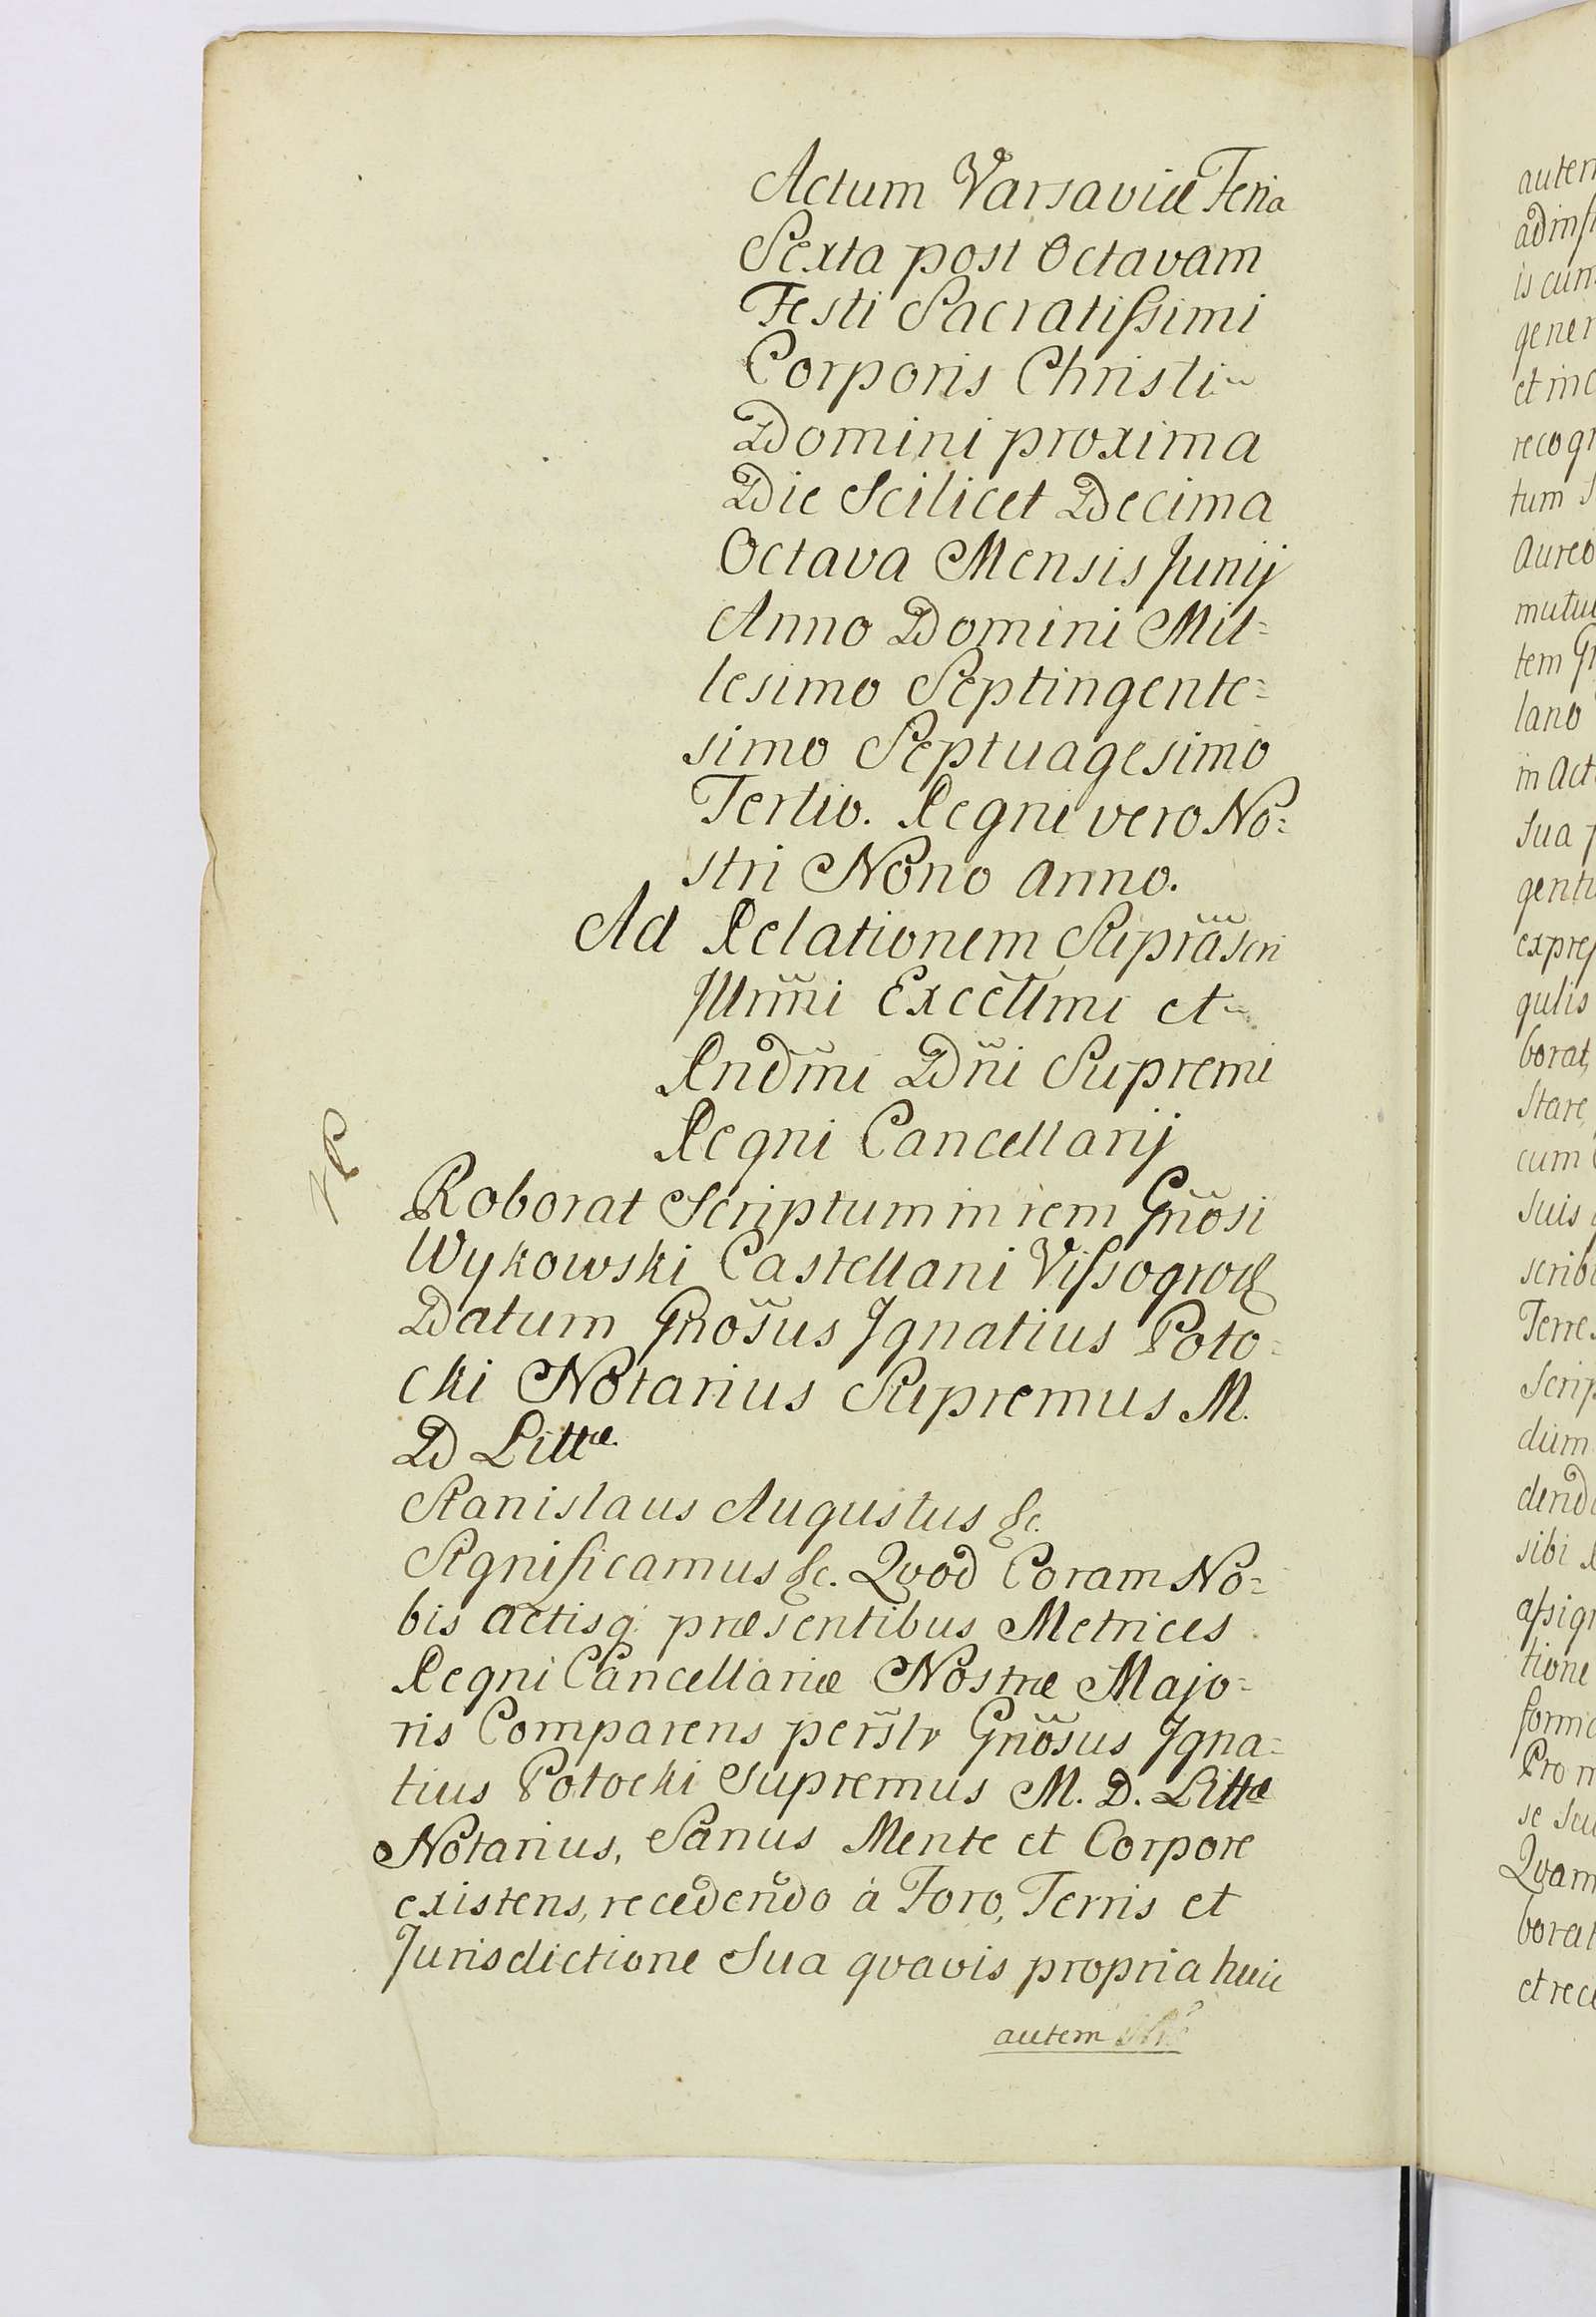 Actum Varsaviæ Feria
Sexta post Octavam
Festi Sacratissimi
Corporis Christi
Domini proxima
Die Scilicet Decima
Octava Mensis Junij
Anno Domini Mil=
lesimo Septingente=
simo Septuagesimo
Tertio. Regni vero No=
stri Nono anno.
Ad Relationem Supra͠scri
Jllr͠mi Excell͠mi et
Rnd͠mi Dn͠i Supremi
Regni Cancellarij
Roborat Scriptum in rem Gn͠osi
Wykowski Castellani Vissogrod
Datum Gno͠sus Jgnatius Poto=
cki Notarius Supremus M.
D Littæ.
Stanislaus Augustus &c.
Significamus &c. Qvod Coram No=
bis actisq: præsentibus Metrices
Regni Cancellariæ Nostræ Majo=
ris Comparens per͠slr Gn͠osus Jgna=
tius Potocki Supremus M. D. Littæ
Notarius, Sanus Mente et Corpore
existens, recedendo à Foro, Terris et
Jurisdictione Sua qvavis propria huic
autem
autem
is cum
gener
recogn
tum
aureo
mutu
tem
lano
in act
Sua
expres
gulis
borat,
Stare,
cum
Suis
scrib
Terre
Scrip
dum
dend
sibi
assign
tione
form
Pro
se Seu
Qvam
borat
et rec